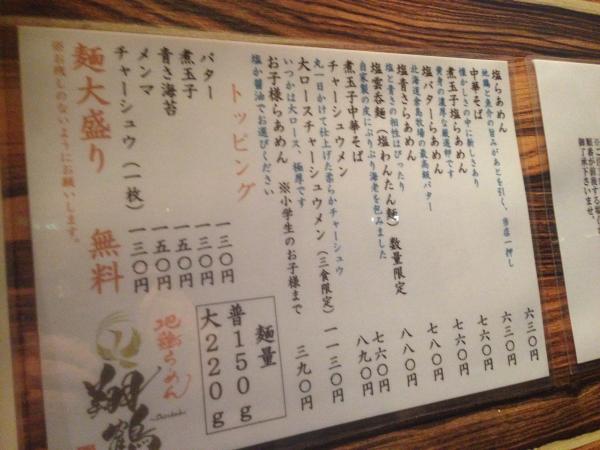 塩らあめん 六三〇円
地鶏と魚介の旨みがあとを引く、当店一押し
中華そば 六三〇円
懐かしさの中に新しさあり
煮玉子塩らあめん 七六〇円
黄身の濃厚な厳選卵です
塩バターらあめん 七六〇円
北海道倉島牧場の最高級バター
塩青さらあめん 七八〇円
塩と青さの相性はぴったり
塩雲呑麺(塩わんたん麺)数量限定 八八〇円
自家製の皮にぷりぷり海老を包みました
煮玉子中華そば 七六〇円
チャーシュウメン 八九〇円
丸一日かけて仕上げた柔らかチャーシュウ
大ロースチャーシュウメン(三食限定) 一一三〇円
いつかは大ロース、極厚です
お子様らあめん ※小学生のお子様まで 三九〇円
塩か醤油でお選びください
トッピング
バター 一三〇円
煮玉子 一三〇円
青さ海苔 一五〇円
メンマ 一五〇円
チャーシュウ(一枚) 一三〇円
麺大盛り 無料
※お残しのないようにお願いします。
麺量
普150g
大220g
地鶏らあめん
翔鶴
順番が前後する場
御了承下さいませ。